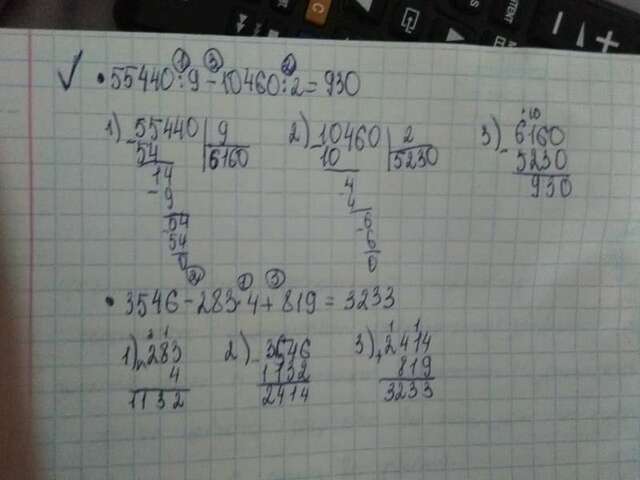 ✓ • 55440 : 9 - 10460 : 2 = 930
1) 55440 | 9
- 54 | 6160
14
- 9
- 54
54
0
2) 10460 | 2
- 10 | 5230
4
- 4
- 6
6
0
3) 6160
- 5230
930
• 3546 - 283 · 4 + 819 = 3233
1) 283
× 4
1132
2) - 3546
1132
2414
3) + 2414
819
3233